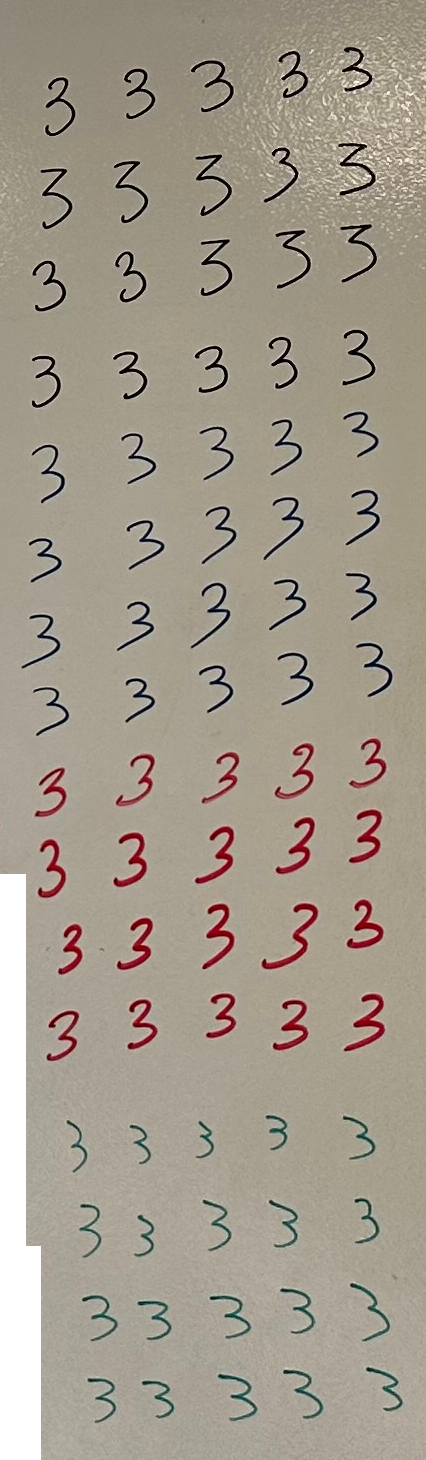 3 3 3 3 3
3 3 3 3 3
3 3 3 3 3
3 3 3 3 3
3 3 3 3 3
3 3 3 3 3
3 3 3 3 3
3 3 3 3 3
3 3 3 3 3
3 3 3 3 3
3 3 3 3 3
3 3 3 3 3
3 3 3 3 3
3 3 3 3 3
3 3 3 3 3
3 3 3 3 3